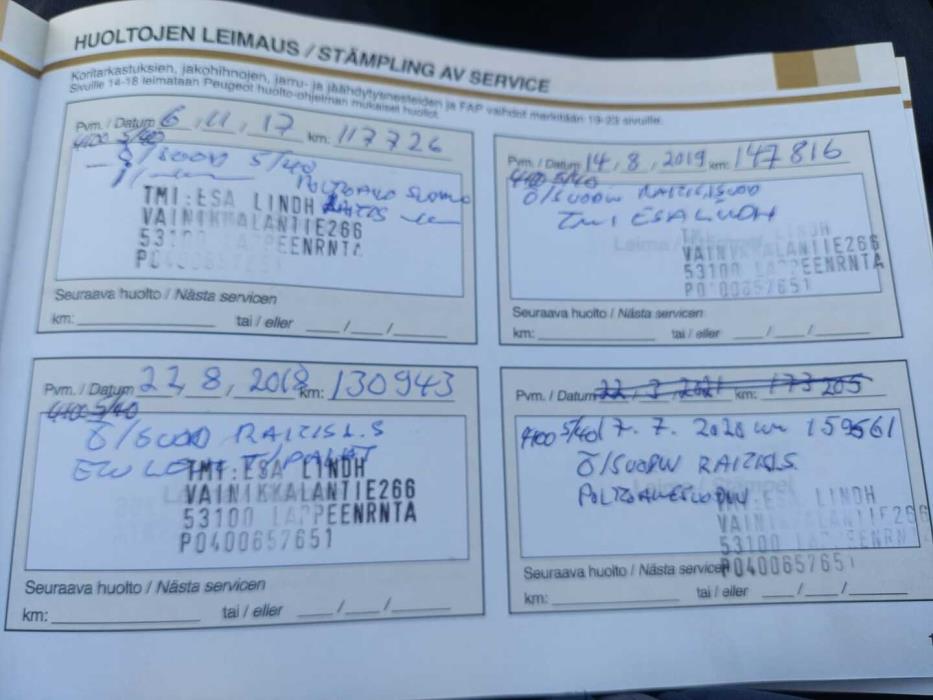 HUOLTOJEN LEIMAUS / STÄMPLING AV SERVICE
Koritarkastuksien, jakohihnojen, jarru- ja jäähdytysnesteiden ja FAP vaihdot merkitään 19-23 sivuille.
Sivuille 14-18 leimataan Peugeot huolto-ohjelman mukaiset huollot.
Pvm. / Datum 6, 11, 17 km: 117726
4100 5/40
Ö/SUOD 5/40
POLTTOAINE SUOD
TMI:ESA LINDH
VAINIKKALANTIE266
53100 LAPPEENRNTA
P0400657651
Seuraava huolto / Nästa servicen
km: tai / eller / /
Pvm. / Datum 14, 8, 2019 km: 147816
4100 5/40
Ö/SUODW RAITIS.SUOD
TMI ESA LINDH
LINDH
VAINIKKALANTIE266
53100 LAPPEENRNTA
P0400657651
Seuraava huolto / Nästa servicen
km: tai / eller / /
Pvm. / Datum 22, 8, 2018 km: 130943
4100 5/40
Ö/SUOD RAITIS.S
TMI:ESA LINDH
VAINIKKALANTIE266
53100 LAPPEENRNTA
P0400657651
Seuraava huolto / Nästa servicen
km: tai / eller / /
Pvm. / Datum 22, 3, 2021 km: 173205
4100 5/40 17. 7. 2020 km 159561
Ö/SUODW RAITIS.S.
ESA LINDH
VAINIKKALANTIE266
53100 LAPPEENRN
P0400657651
Seuraava huolto / Nästa servicen
km: tai / eller / /